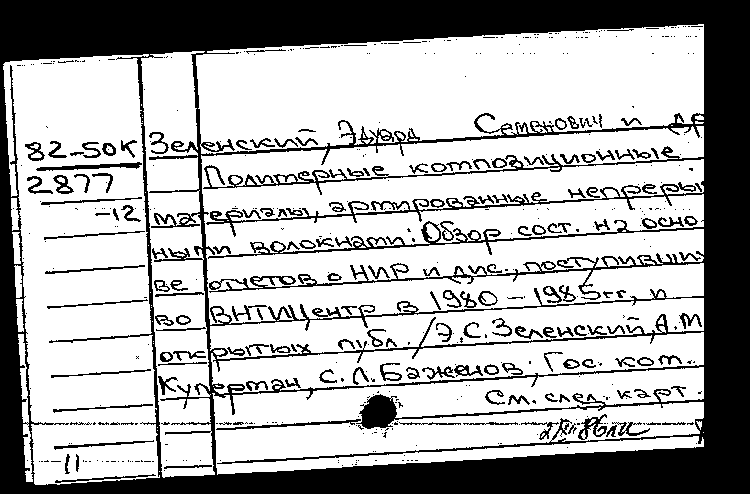 82-50К Зеленский, Эдуард Семенович и др
2877 Полимерные композиционные
-12 материалы, армированные непреры
ными волокнами: Обзор сост. на осно
ве отчетов о НИР и дис., поступивших
во ВНТИЦентр в 1980-1985гг, и
открытых публ. / Э.С.Зеленский, А.М
Куперман, С.Л.Баженов; Гос. ком.
См. след. карт.
11